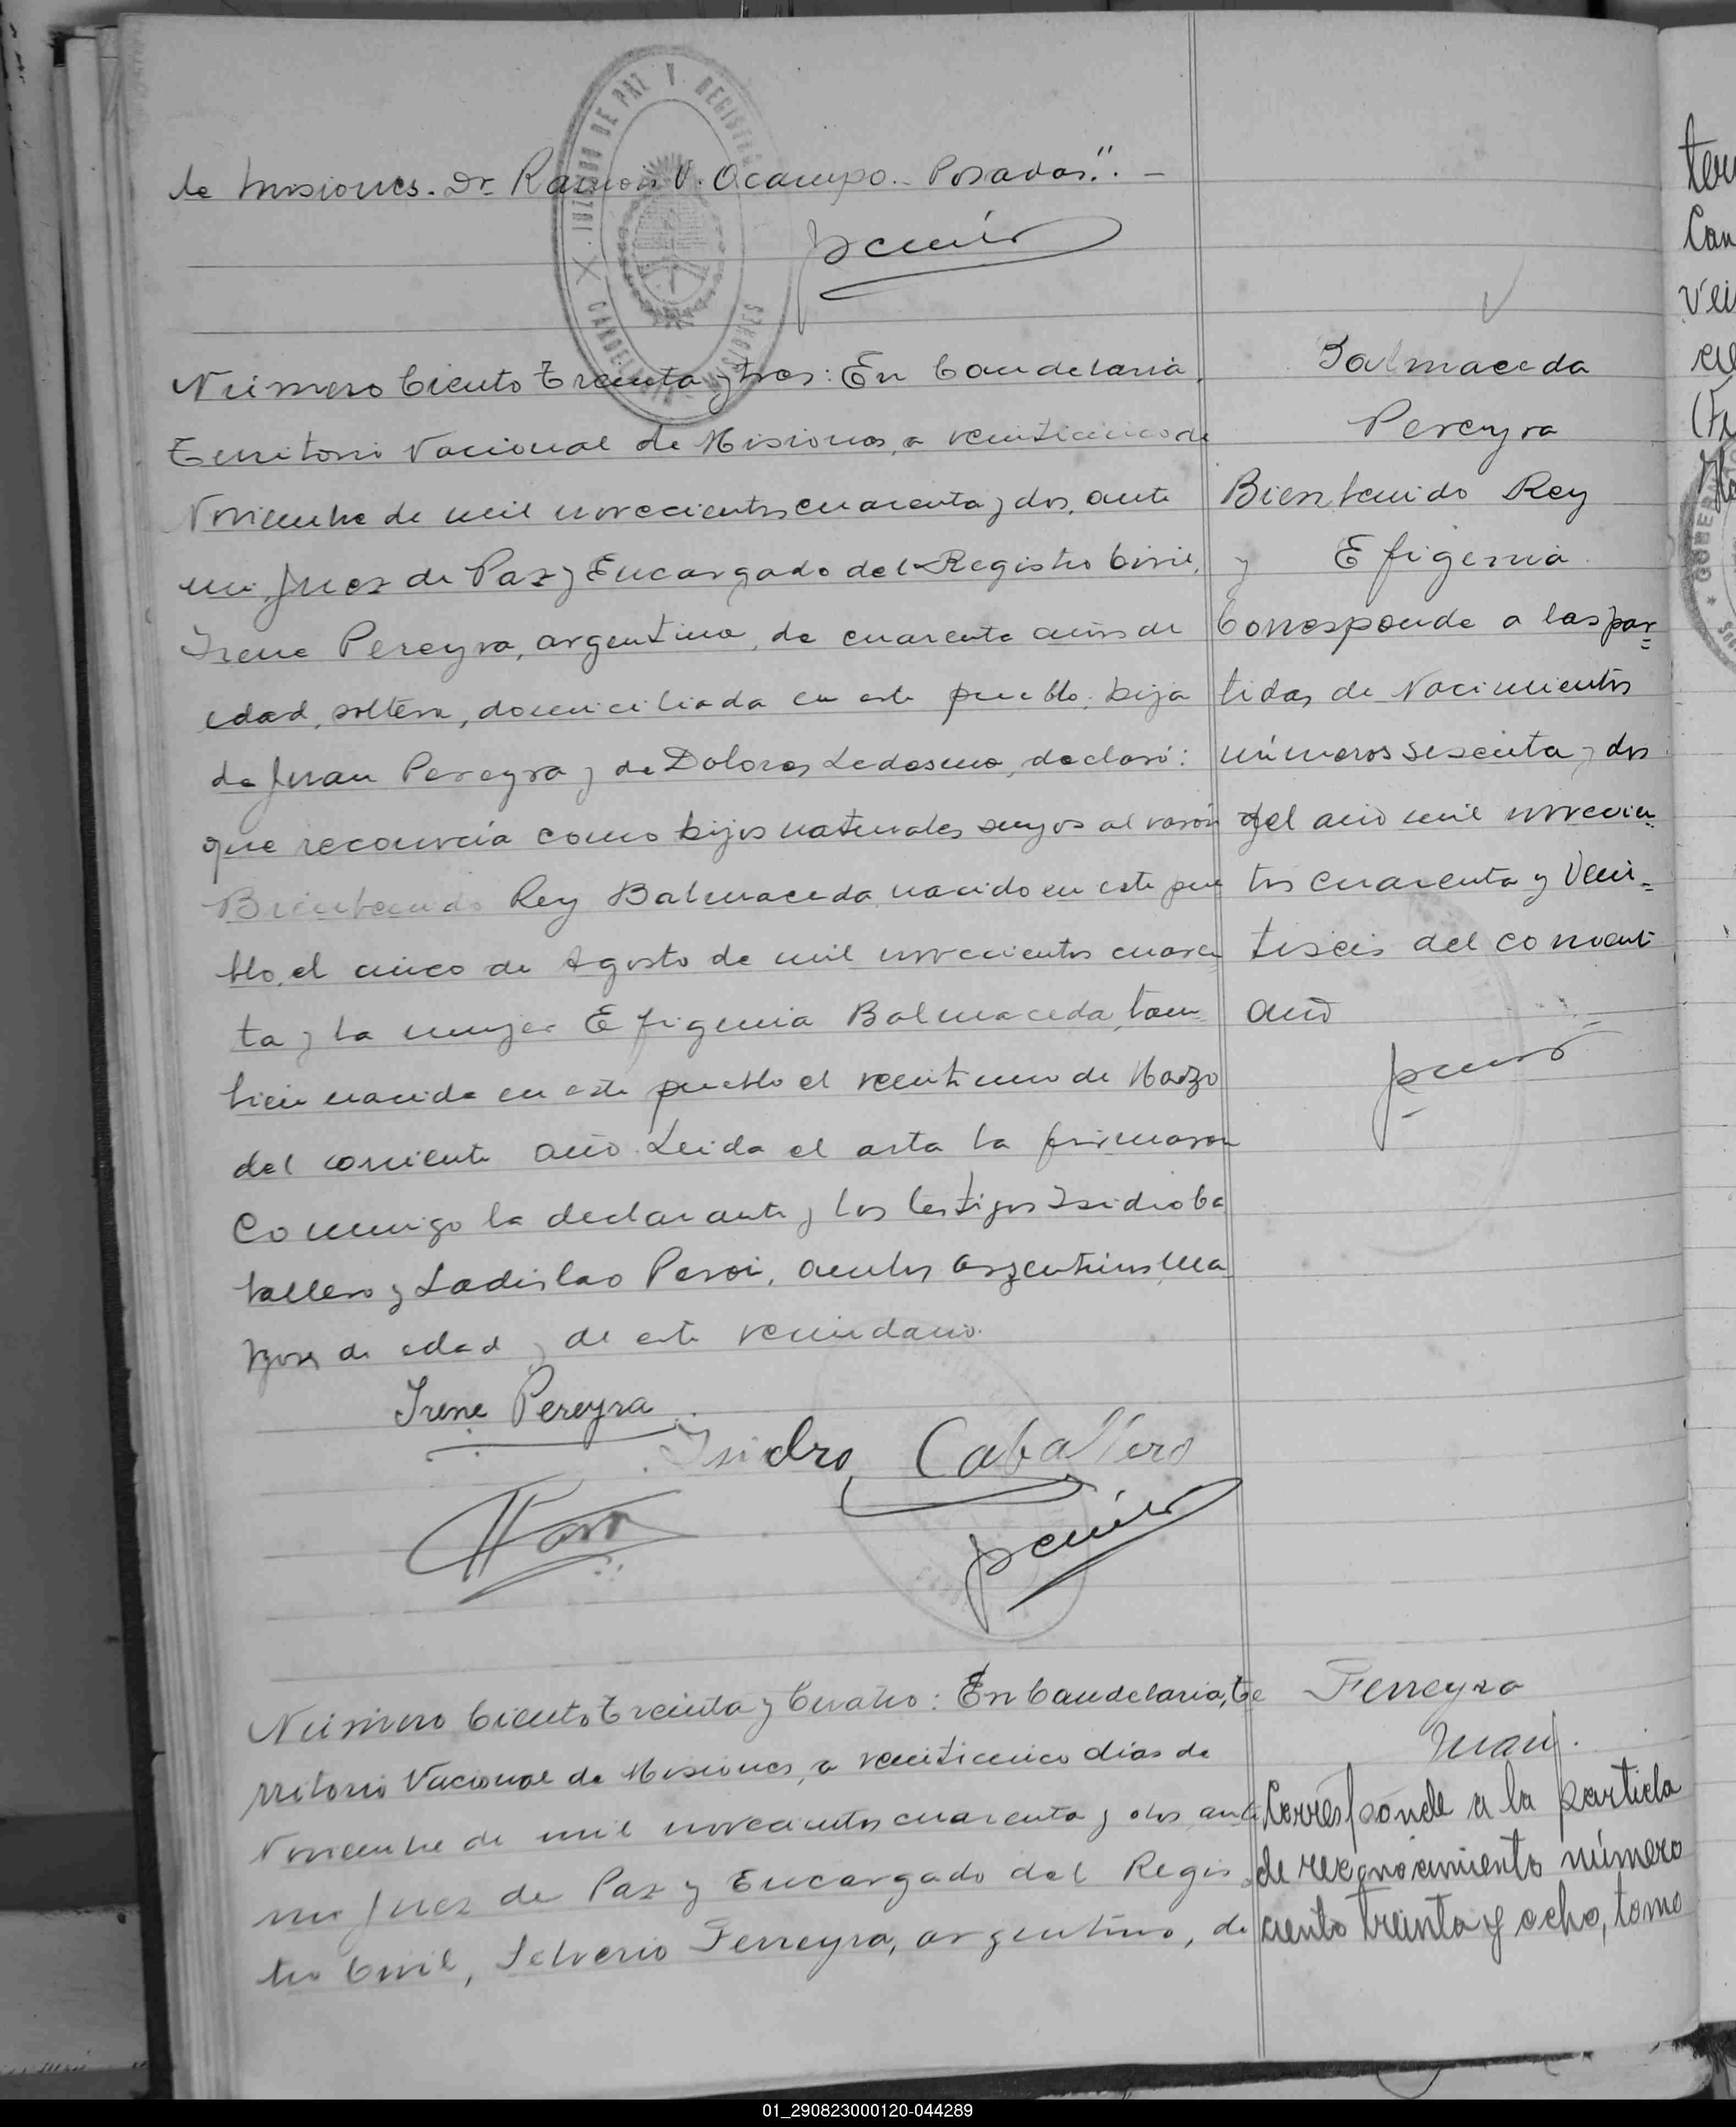 de Misiones. Dr. Ramón V. Ocampo. Posadas". -
JUZGADO DE PAZ Y REGISTRO
CANDELARIA MISIONES
Número Ciento Treinta y tres: En Candelaria,
Territorio Nacional de Misiones, a veinticinco de
Noviembre de mil novecientos cuarenta y dos, ante
mi, Juez de Paz y Encargado del Registro Civil,
Irene Pereyra, argentina, de cuarenta años de
edad, soltera, domiciliada en este pueblo, hija
de Juan Pereyra y de Dolores Ledesma, declaró:
que reconocía como hijos naturales suyos al varón
Bienvenido Rey Balmaceda, nacido en este pue
blo, el cinco de Agosto de mil novecientos cuaren
ta y la mujer Efigenia Balmaceda, tam
bien nacida en este pueblo el veintiuno de Marzo
del corriente año. Leida el acta la firmaron
conmigo la declarante y los testigos Isidro Ca
ballero y Ladislao , ambos argentinos ma
yores de edad y de este vecindario.
Irene Pereyra
Isidro Caballero
Balmaceda
Pereyra
Bienvenido Rey
y Efigenia.
Corresponde a las par=
tidas de Nacimientos
números sesenta y dos
del año mil novecien=
tos cuarenta y vein=
tiseis del corriente
año
Número Ciento Treinta y Cuatro: En Candelaria, Te
rritorio Nacional de Misiones, a veinticinco días de
Noviembre de mil novecientos cuarenta y dos, ante
mi Juez de Paz y Encargado del Regis
tro Civil, Silverio Ferreyra, argentino, de
Ferreyra
Juan.
Corresponde a la partida
de reconocimiento número
ciento treinta y ocho, tomo
01_290823000120-044289